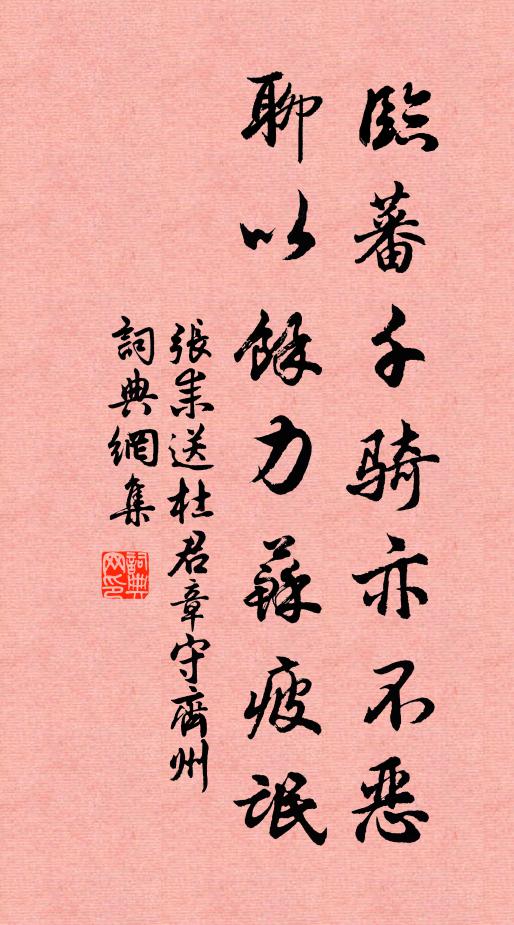 臨蕃千騎亦不惡
聊以餘力蘇疲氓
張耒送杜君章守齊州
詞典網集
詞典網印